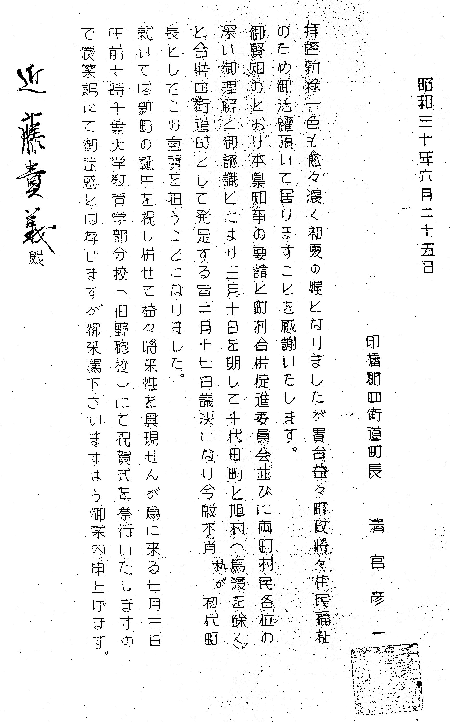 昭和三十年六月二十五日
印旛郡四街道町長
拝啓新緑一色も愈々濃く初夏の候となりましたが貴台益々町政将又住民福祉
のため御活躍頂いて居りますことを感謝いたします。
御賢知のとおり本県知事の要請と町村合併促進委員会並びに両町村民各位の
深い御理解と御認識とにより三月十日を期して千代田町と旭村(鳥渡を除く)
と合併四街道町として発足する旨二月十七日議決になり今般不肖 私が 初代町
長としてこの重責を担うことになりました。
就いては新町の誕生を祝し併せて益々将来性を具現せんが為に来る七月一日
午前十時千葉大学教育学部分校(旧野砲校)にて祝賀式を挙行いたしますの
で農繁期にて御迷惑とは存じますが御来場下さいますよう御案内申上げます。
近藤貴義殿